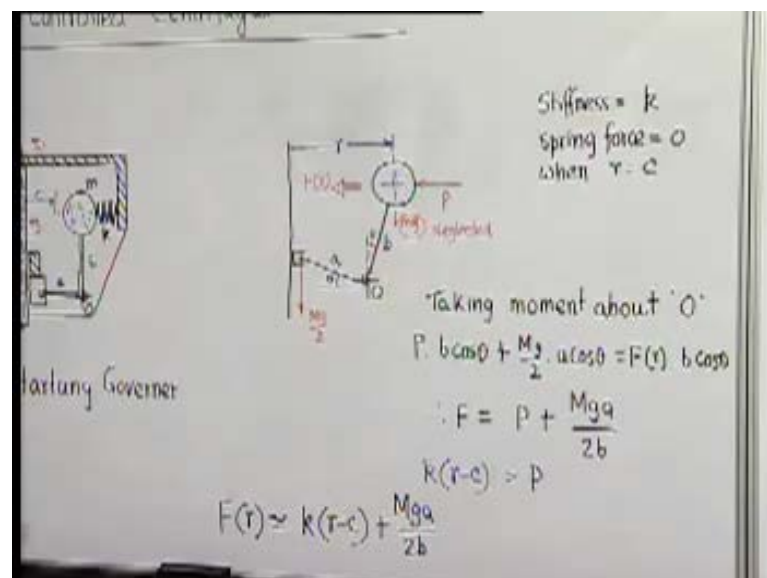 Controlled Centrifugal
Stiffness = k
spring force = 0
when r = c
r
F(r)
P
c
m
k
b
neglected
a
a
O
Mg
2
Taking moment about 'O'
P. b cosθ + Mg/2 . a cosθ = F(r) b cosθ
∴ F = P + Mga/2b
k(r-c) = P
F(r) ≃ k(r-c) + Mga/2b
Hartung Governer